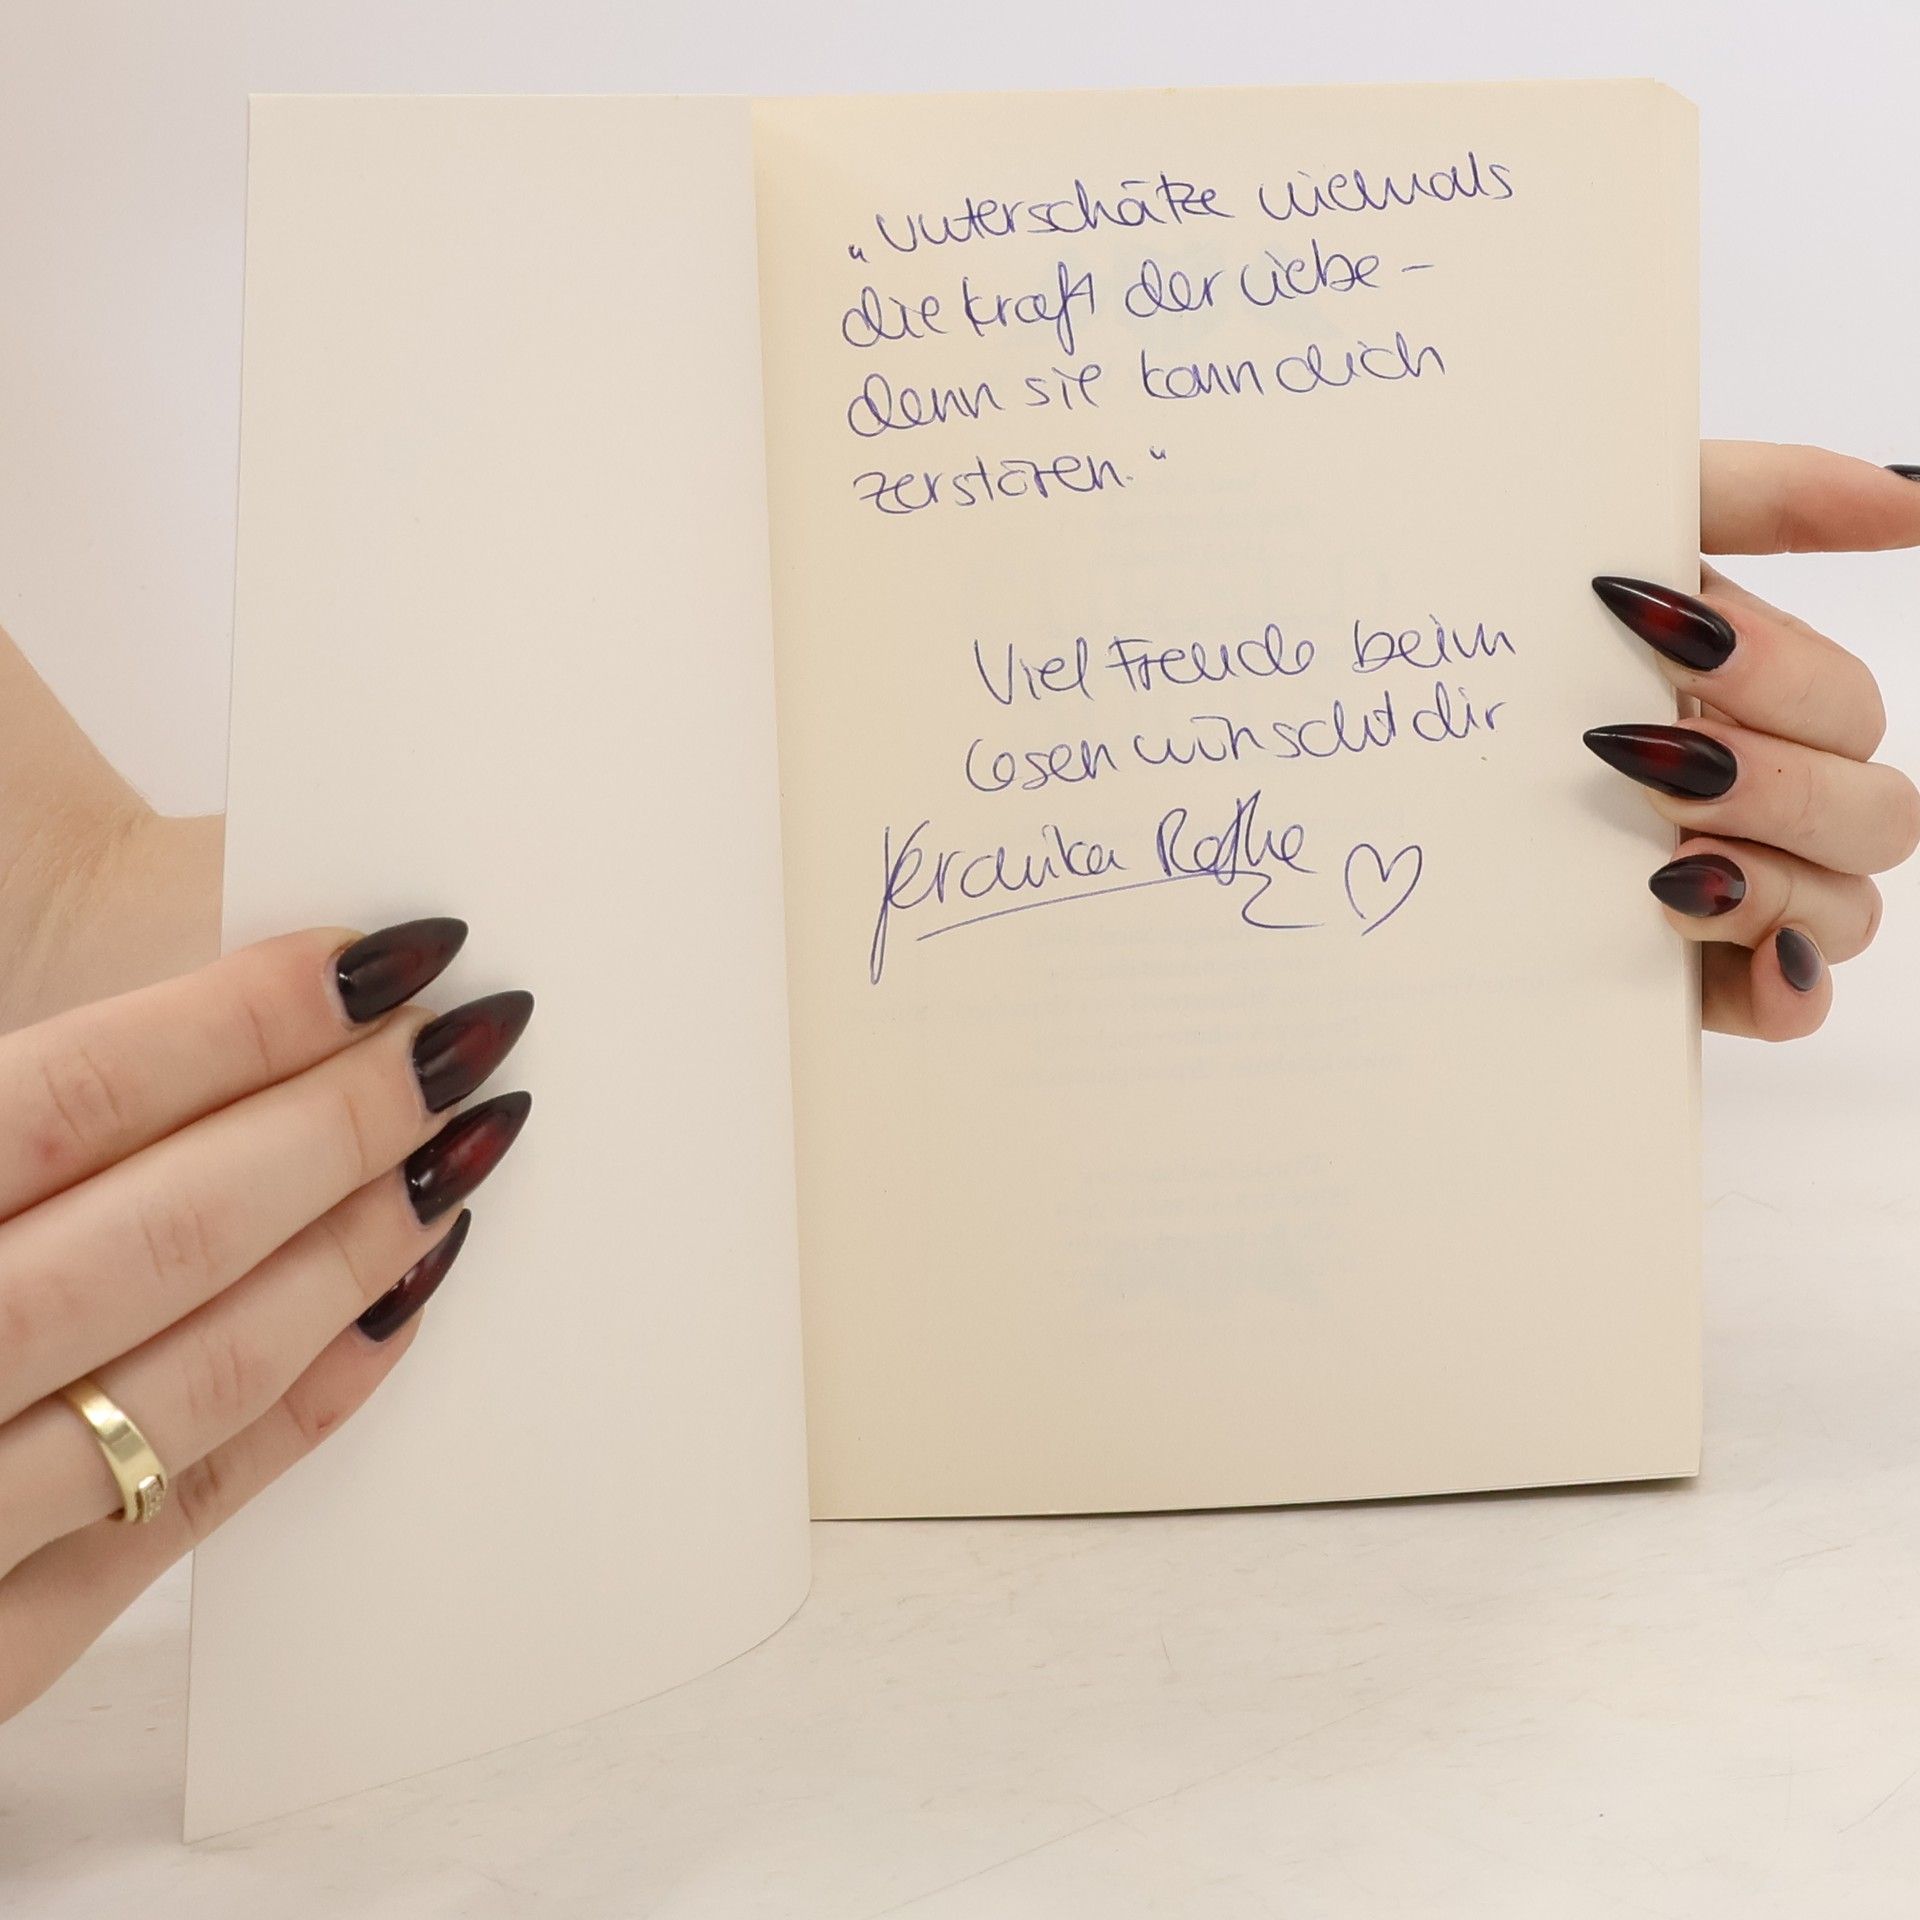 „Unterschätze niemals
die Kraft der Liebe –
denn sie kann dich
zerstören.“
Viel Freude beim
Lesen wünscht dir
Veronika Rothe